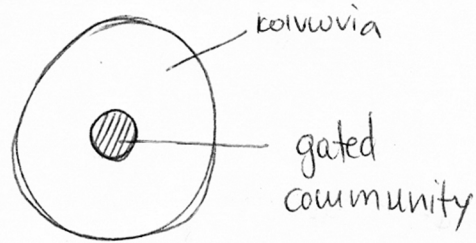 κοινωνία
gated
community